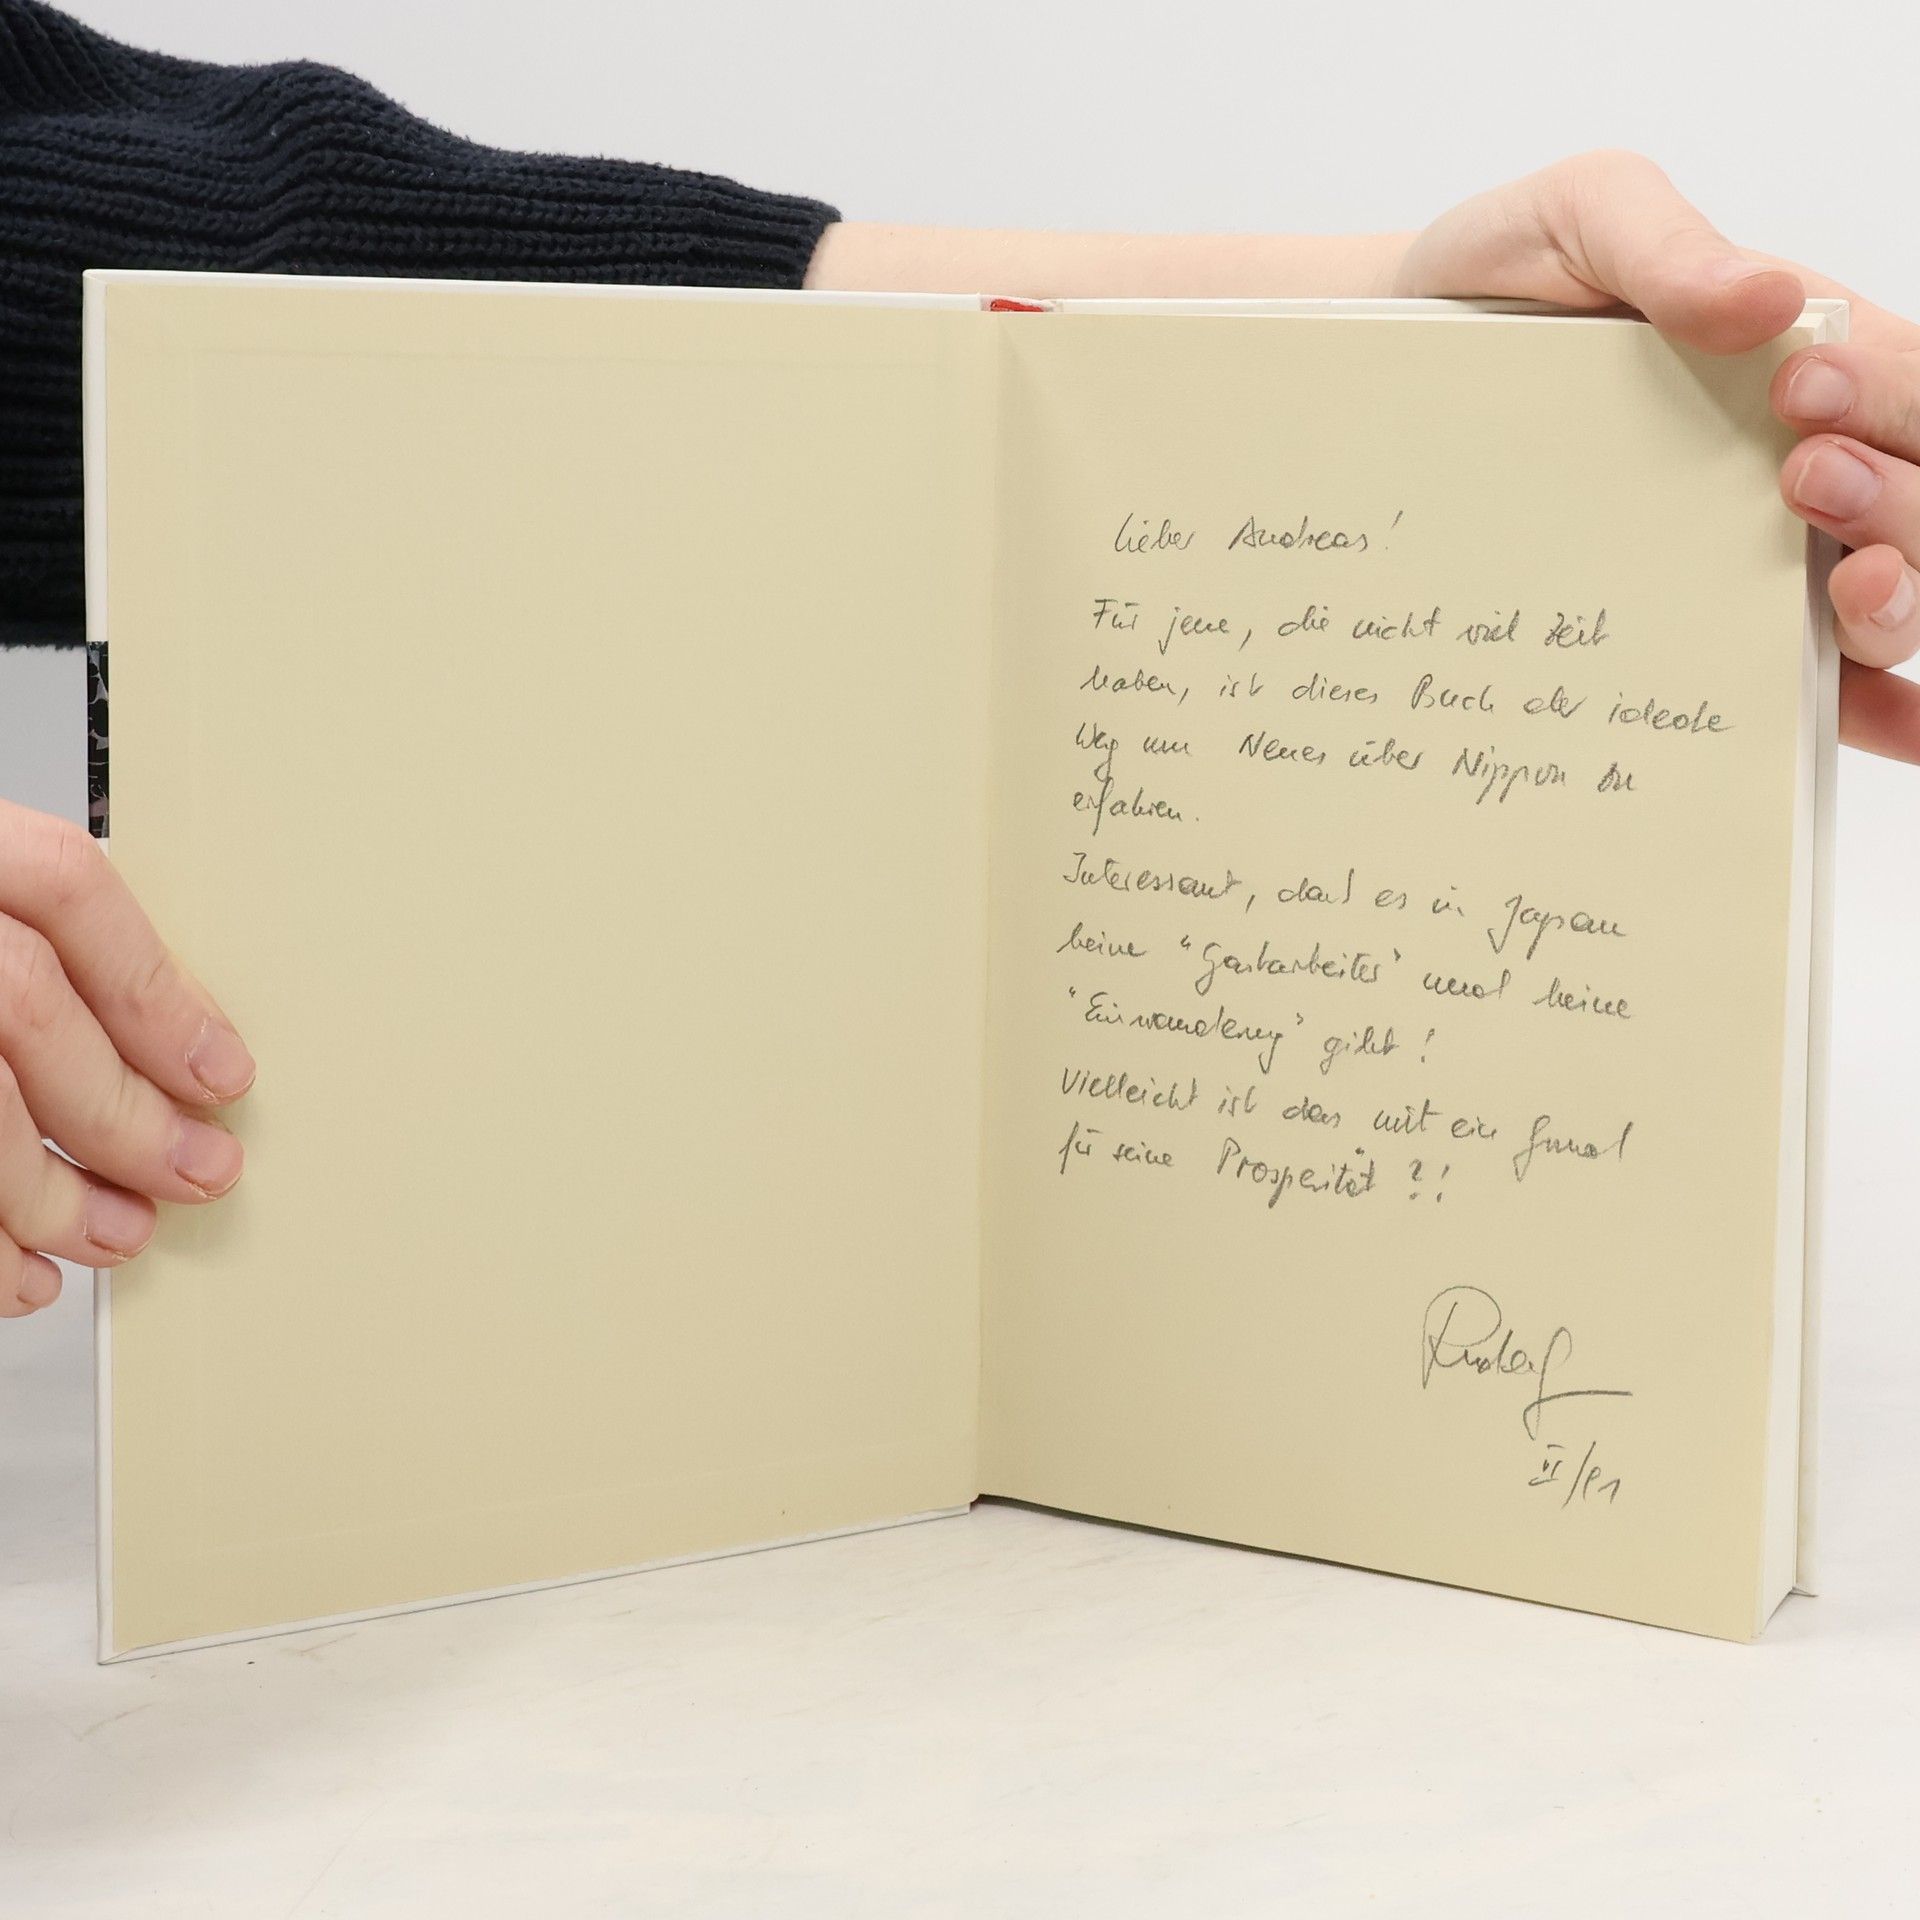 Lieber Andreas!
Für jene, die nicht viel Zeit
haben, ist dieses Buch der ideale
Weg um Neues über Nippon zu
erfahren.
Interessant, daß es in Japan
keine "Gastarbeiter" und keine
"Einwanderung" gibt!
Vielleicht ist das mit ein Grund
für seine Prosperität ?!
Rudolf
VI/91